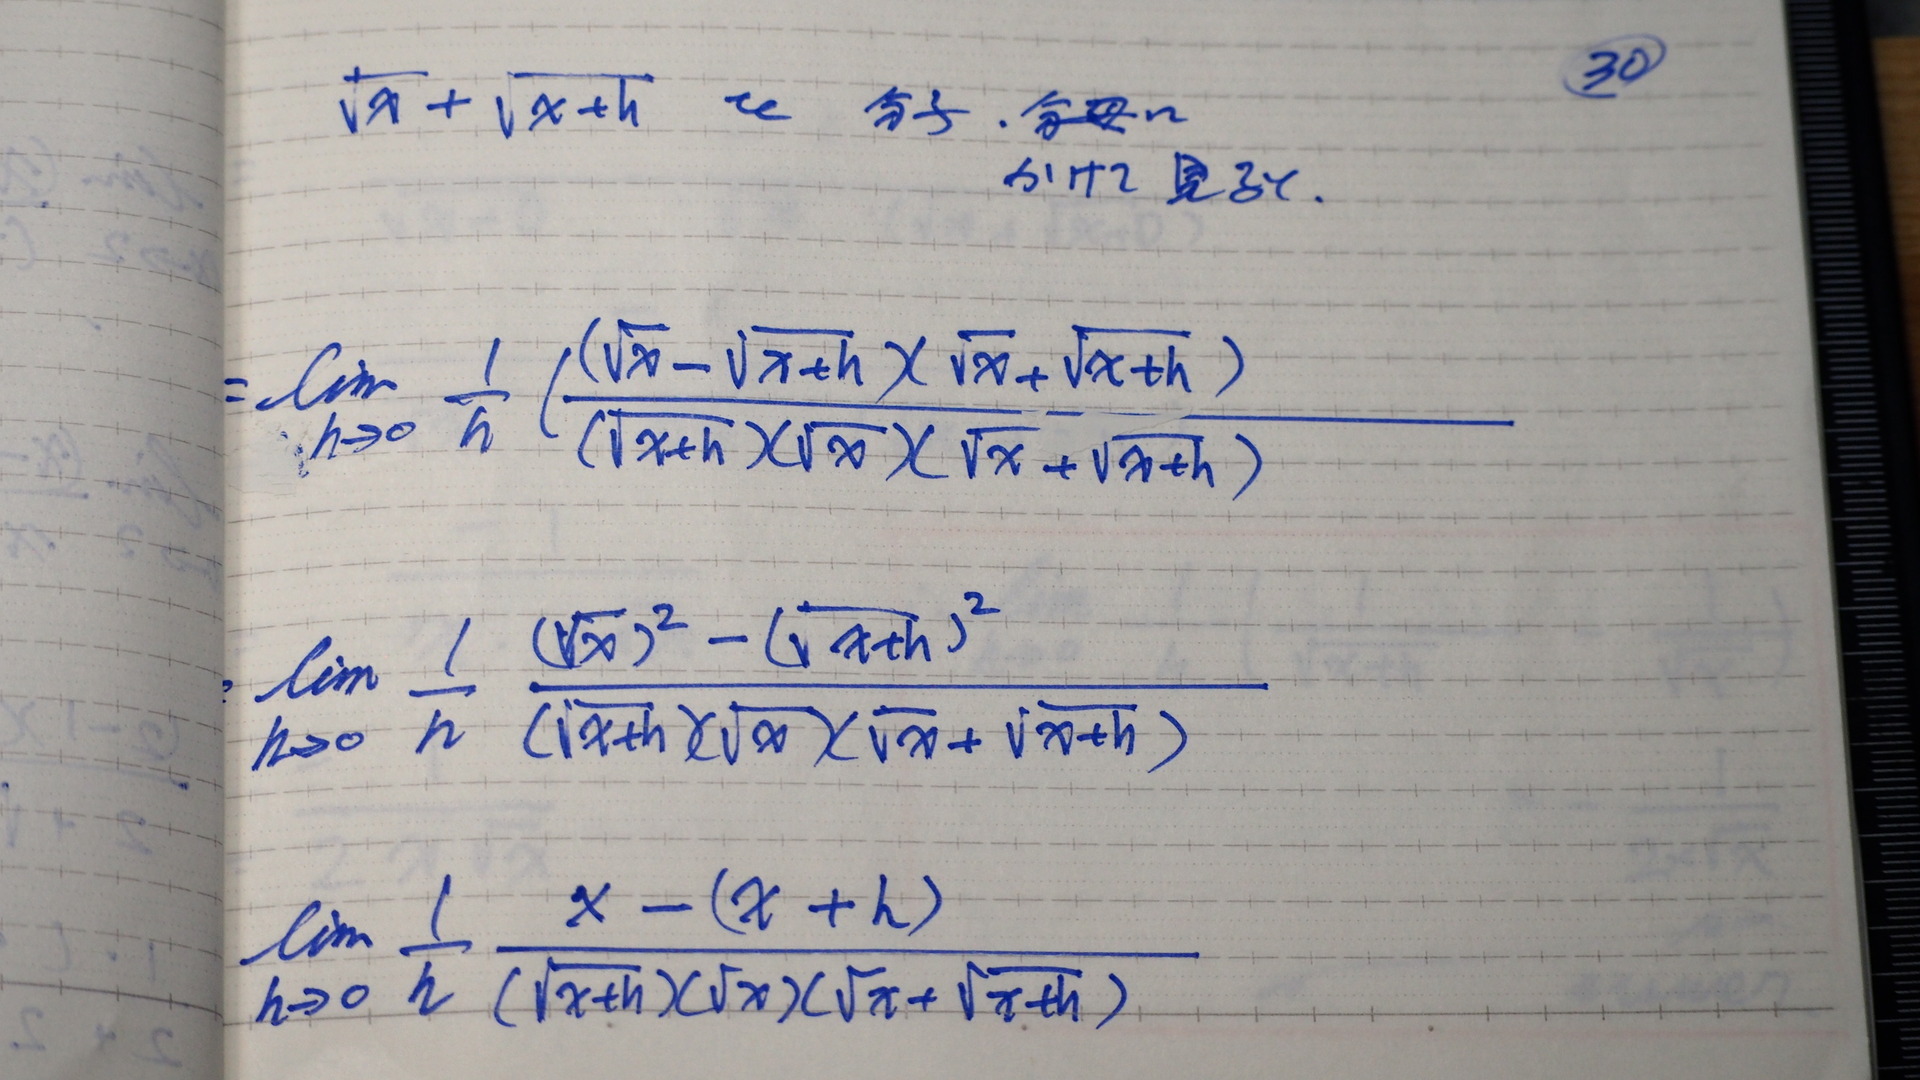 30
√x + √x+h を 分子.分母に
かけて見ると.
= lim 1/h ( (√x - √x+h)(√x + √x+h) / (√x+h)(√x)(√x + √x+h)
h→0
= lim 1/h (√x)² - (√x+h)² / (√x+h)(√x)(√x + √x+h)
h→0
lim 1/h x - (x + h) / (√x+h)(√x)(√x + √x+h)
h→0